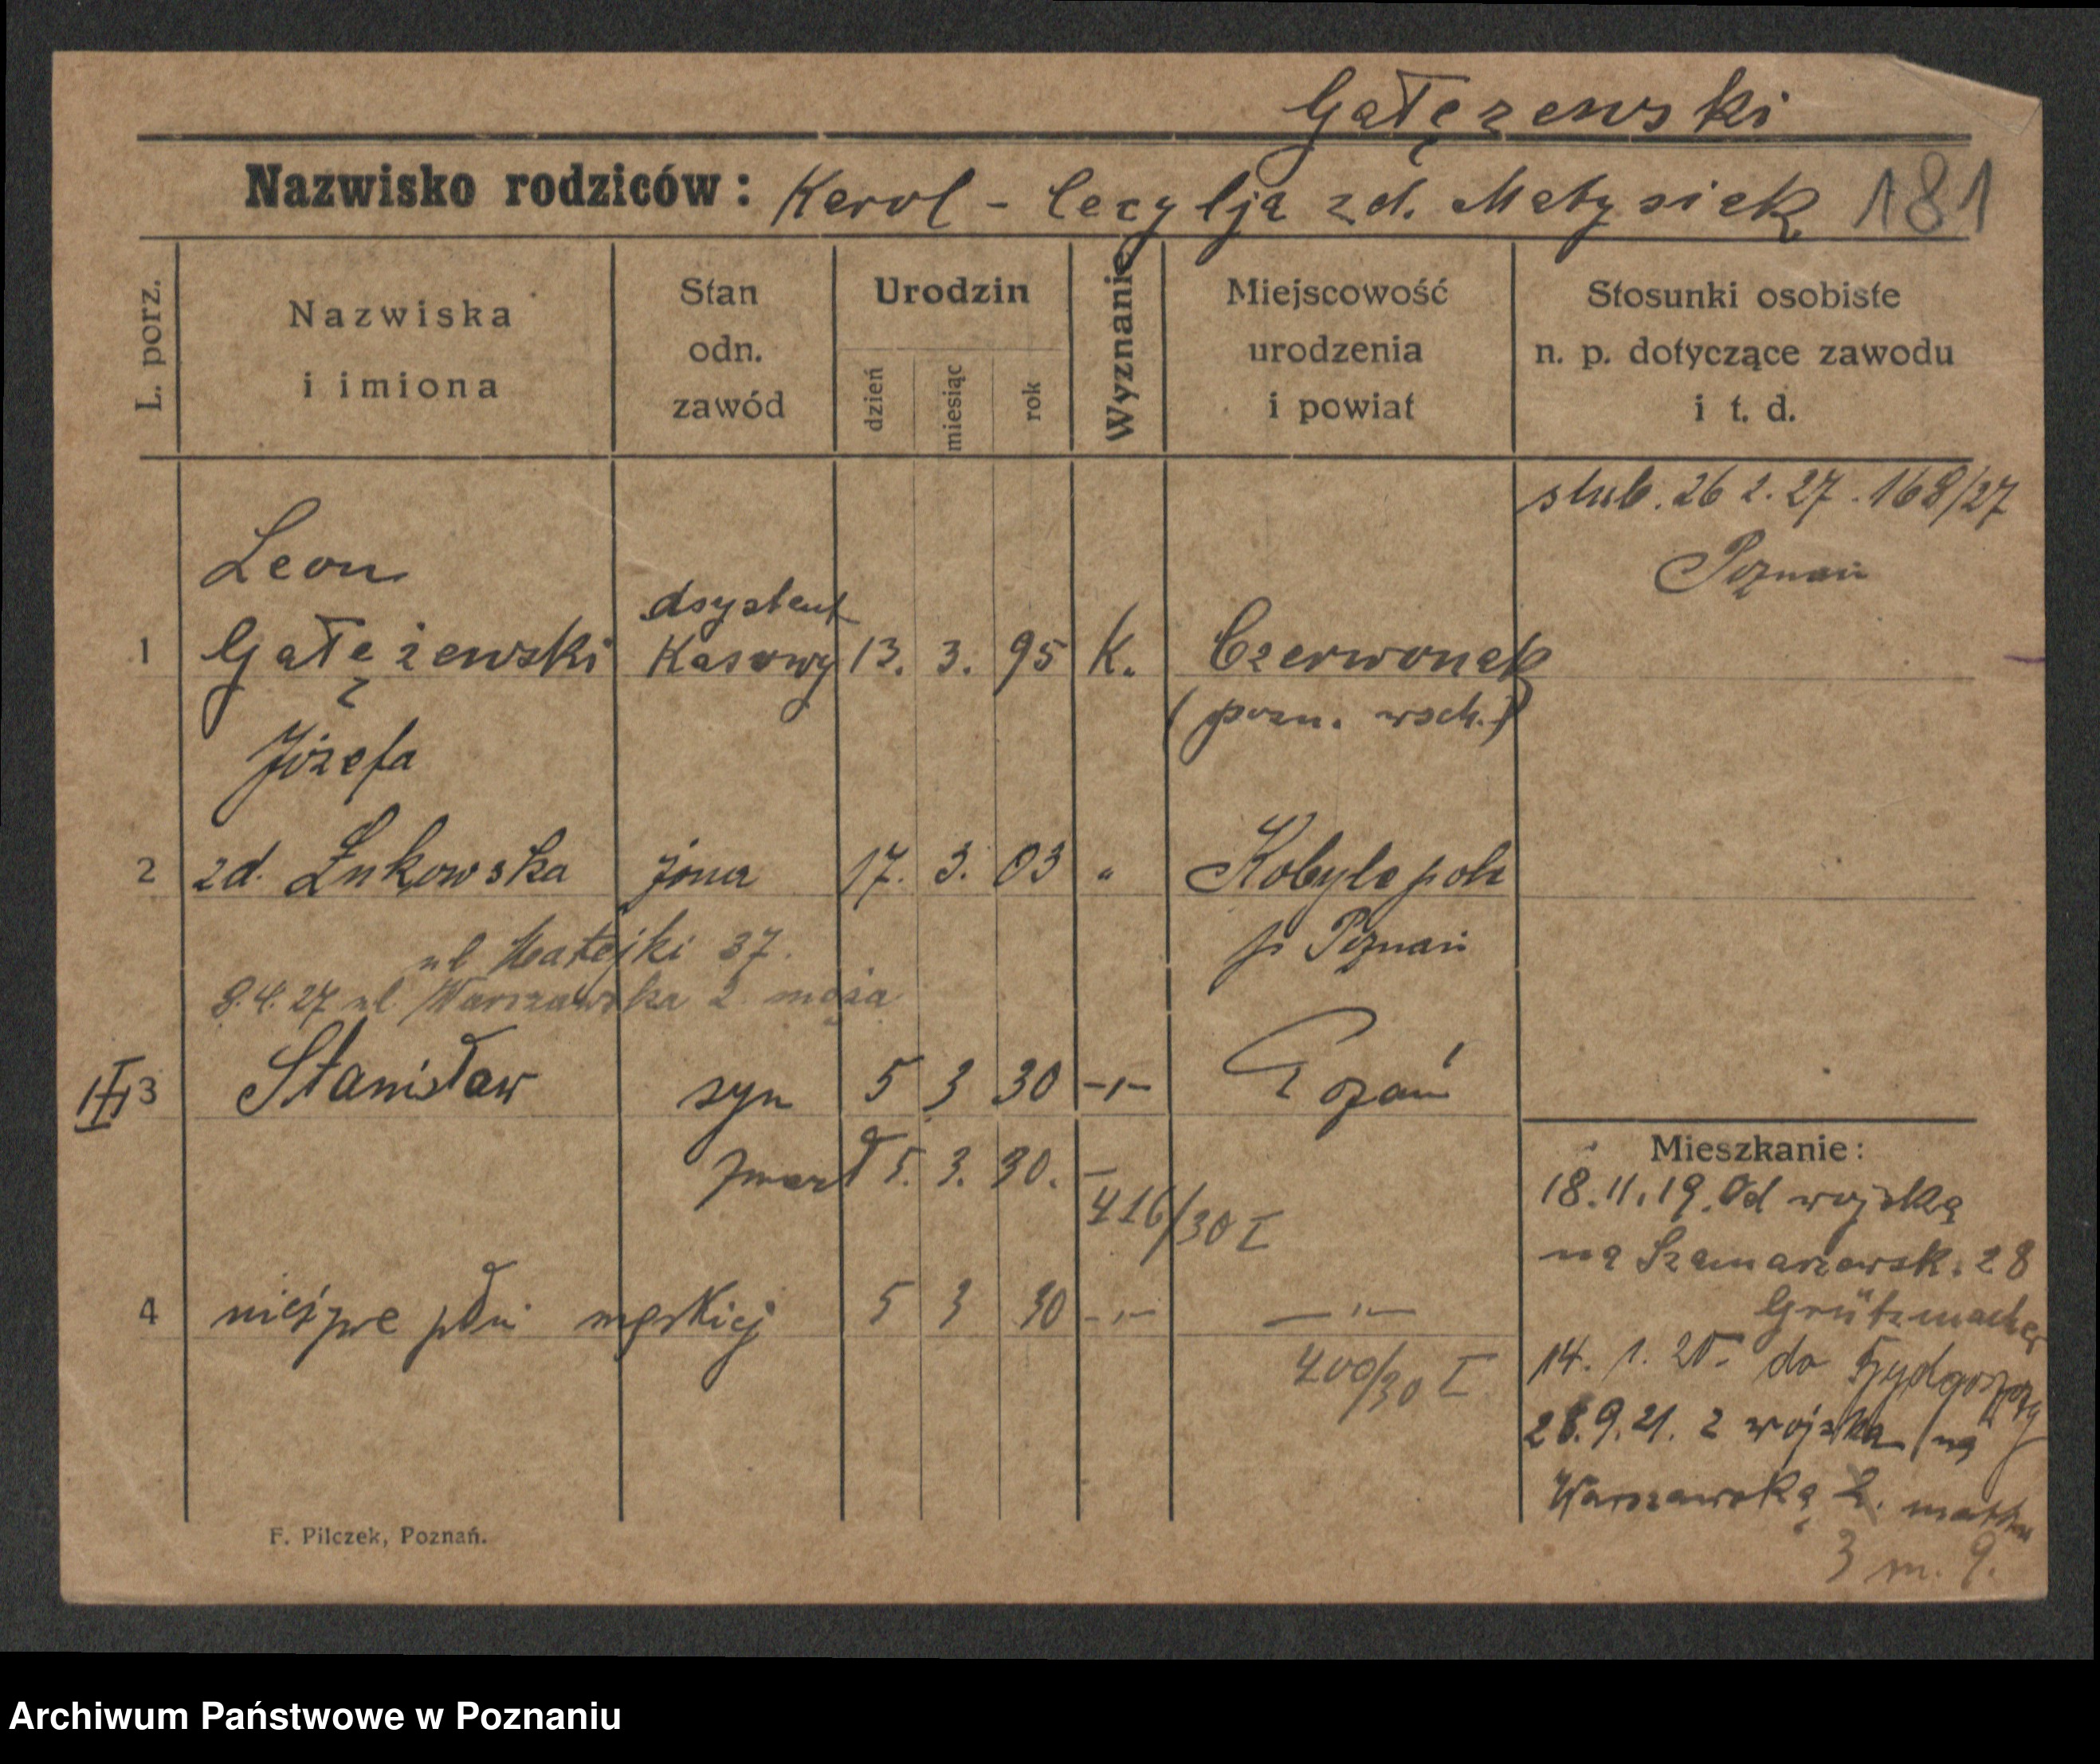 Gałęzewski
Nazwisko rodziców: Karol - Cecylja zd. Matysiak 181
L. porz.
Nazwiska
i imiona
Stan
odn.
zawód
Urodzin
dzień
miesiąc
rok
Wyznanie
Miejscowość
urodzenia
i powiat
Stosunki osobiste
n. p. dotyczące zawodu
i t. d.
ślub. 26 2. 27. 168/27
Poznań
Leon
asystent
1 Gałężewski Kasowy 13. 3. 95 K. Czerwonak
(pozn. wsch.)
Józefa
2 zd. Żukowska żona 17. 3. 03 " Kobylepole
p Poznań
ul Matejki 37.
8.4.27 ul Warszawska 2 męża
III 3 Stanisław syn 5 3 30 -"- Poznań
zmarł 5. 3. 30. -
416/30 I
4 nieżywe płci męskiej 5 3 30 -"- -"-
400/30 I
Mieszkanie:
18.11.19. Od wojska
na Szamarzewsk. 28
Grützmacher
14. 1. 20. do Bydgoszczy
28.9.21. z wojska na
Warszawską 2. matka
3 m. 9.
F. Pilczek, Poznań.
Archiwum Państwowe w Poznaniu